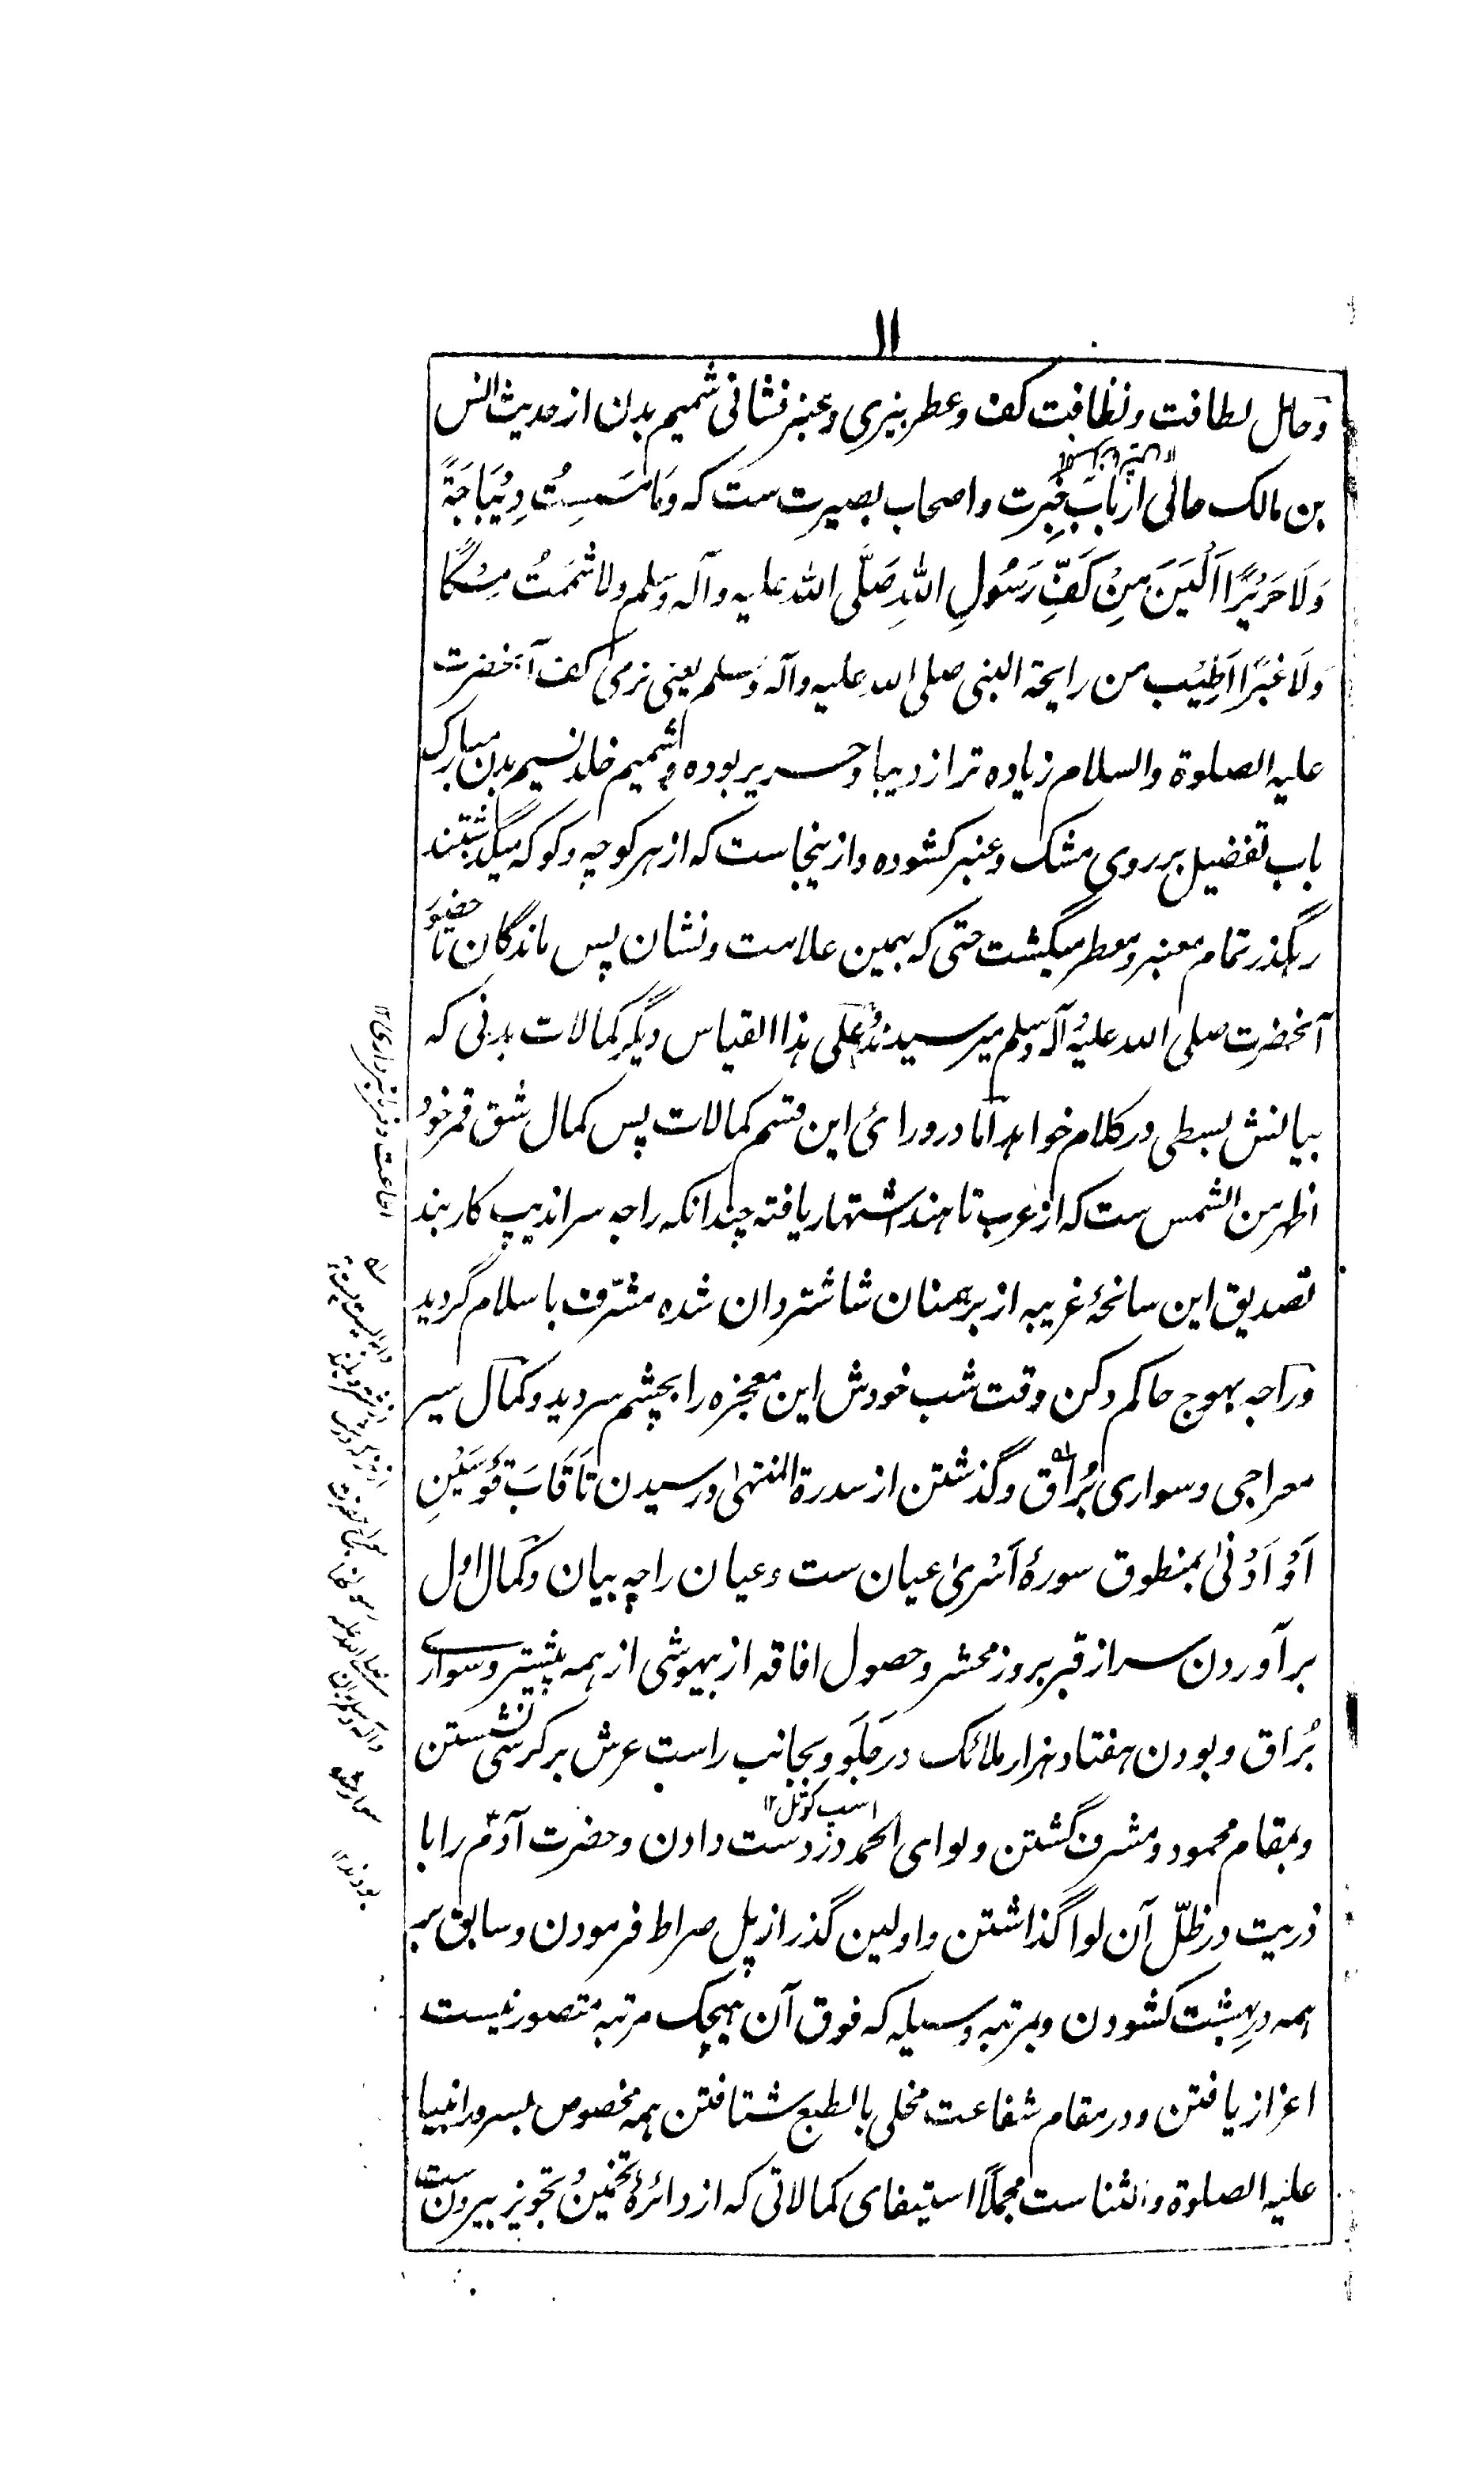 ۱۱
وحال لطافت ونظافت کف وعطر بیزی وعنبر فشانی شمیم بدن از حدیث انس
بن مالک حالی ارباب خِبرت واصحاب بصیرت ست که وَمَا مَسَسِتُ دِیْبَاجَةً
وَلَا حَرِیْرًا اَلْیَنَ مِنْ کَفِّ رَسُولِ اللهِ صَلَّی الله علیه وآله وسلم ولا شَمَمتُ مِسْکًا
وَلَا عَنْبَرًا اَطْیَب من رایحة النبی صلی الله علیه وآله وسلم یعنی نرمی کف آنحضرت
علیه الصلوة والسلام زیاده تر از دیبا وحریر بوده وشمیم خلد نسیم بدن مبارک
باب تفضیل بر روی مشک وعنبر کشوده وازینجاست که از هر کوچه وکو که میگذشتند
رهگذر تمام معنبر ومعطر میگشت حتی که بهمین علامت ونشان پس ماندگان تا حضور
آنحضرت صلی الله علیه وآله وسلم میرسیدند وعلی هذا القیاس دیگر کمالات بدنی که
بیانش بسطی در کلام خواهد اما در ورای این قسم کمالات پس کمال شق قمر خود
اظهر من الشمس ست که از عرب تا هند اشتهار یافته چندانکه راجه سراندیپ کار بند
تصدیق این سانحهٔ غریبه از برهمنان شاشتردان شده مشرّف باسلام گردید
وراجه بهوج حاکم دکن وقت شب خودش این معجزه را بچشم سر دید وکمال سیر
معراجی وسواری بُراق وگذشتن از سدرة المنتهیٰ ورسیدن تا قَابَ قَوْسَیْنِ
اَوْ اَدْنیٰ بمنطوق سورهٔ اَسْریٰ عیان ست وعیان را چه بیان وکمال اول
برآوردن سر از قبر بروز محشر وحصول افاقه از بیهوشی از همه پیشتر وسواری
بُراق وبودن هفتاد هزار ملائک در جَلَو وبجانب راست عرش بر کرسی نشستن
اسپ کوتل ۱۲
وبمقام محمود ومشرف گشتن ولوای الحمد در دست دادن وحضرت آدم را با
ذریت در ظلّ آن لوا گذاشتن واولین گذر از پل صراط فرمودن وسابق بر
همه در بهشت کشودن وبمرتبه وسیله که فوق آن هیچک مرتبه متصور نیست
اعزاز یافتن ودر مقام شفاعت مخلی بالطبع شتافتن همه مخصوص بسرور انبیا
علیه الصلوة والثناست مجملاً استیفای کمالاتی که از دائرهٔ تخمین وتجویز بیرون ست
اطاعت وفرمانبرداری ۱۲